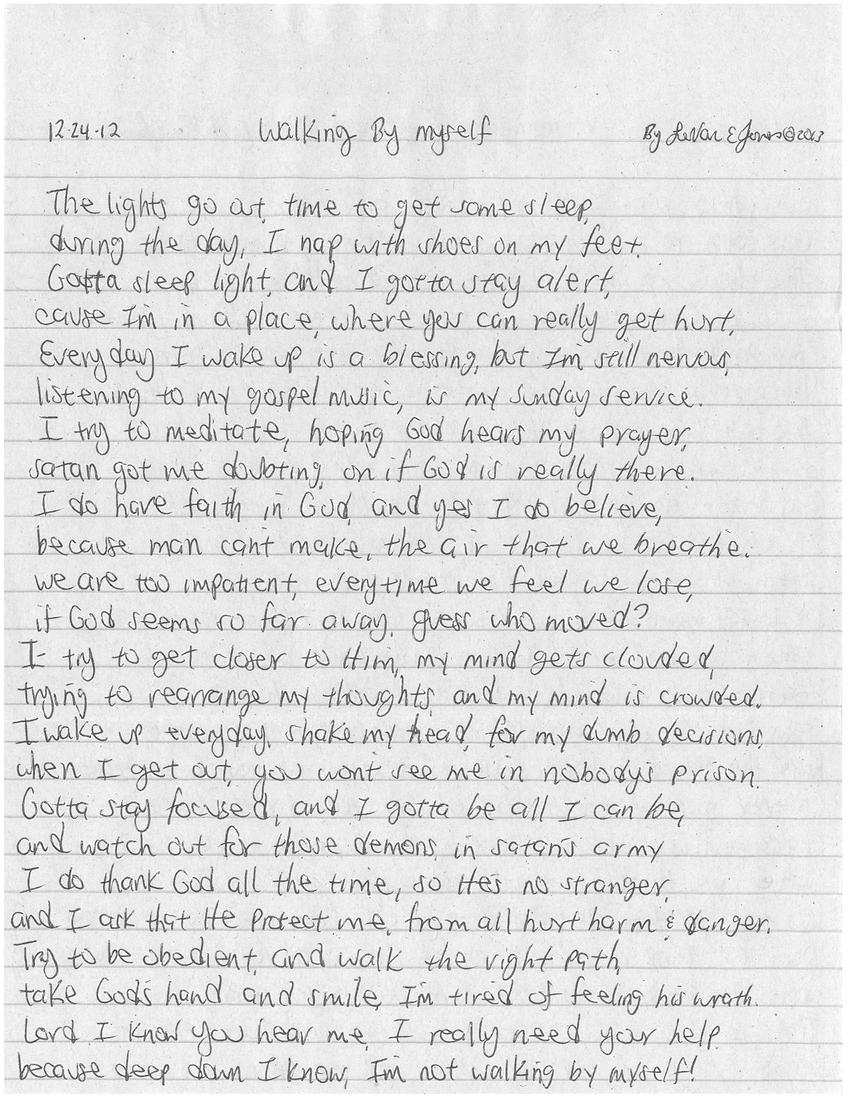 12-24-12 Walking By myself By LaVar E Jones©2013
The lights go out, time to get some sleep,
during the day, I nap with shoes on my feet.
Gotta sleep light, and I gotta stay alert,
cause Im in a place, where you can really get hurt.
Everyday I wake up is a blessing, but Im still nervous,
listening to my gospel music, is my Sunday service.
I try to meditate, hoping God hears my prayer,
satan got me doubting, on if God is really there.
I do have faith in God, and yes I do believe,
because man cant make, the air that we breathe.
we are too impatient, everytime we feel we lose,
if God seems so far away, guess who moved?
I try to get closer to Him, my mind gets clouded,
trying to rearrange my thoughts, and my mind is crowded.
I wake up everyday, shake my head, for my dumb decisions,
when I get out, you wont see me in nobodys prison.
Gotta stay focused, and I gotta be all I can be,
and watch out for those demons, in satan's army
I do thank God all the time, so He's no stranger,
and I ask that He Protect me, from all hurt harm & danger.
Try to be obedient, and walk the right path,
take Gods hand and smile, Im tired of feeling his wrath.
Lord I know you hear me, I really need your help
because deep down I know, Im not walking by myself!